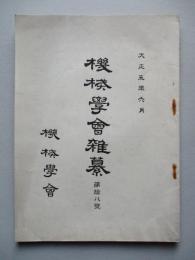 大正五年六月
機械學會雜纂
第拾八號
機械學會